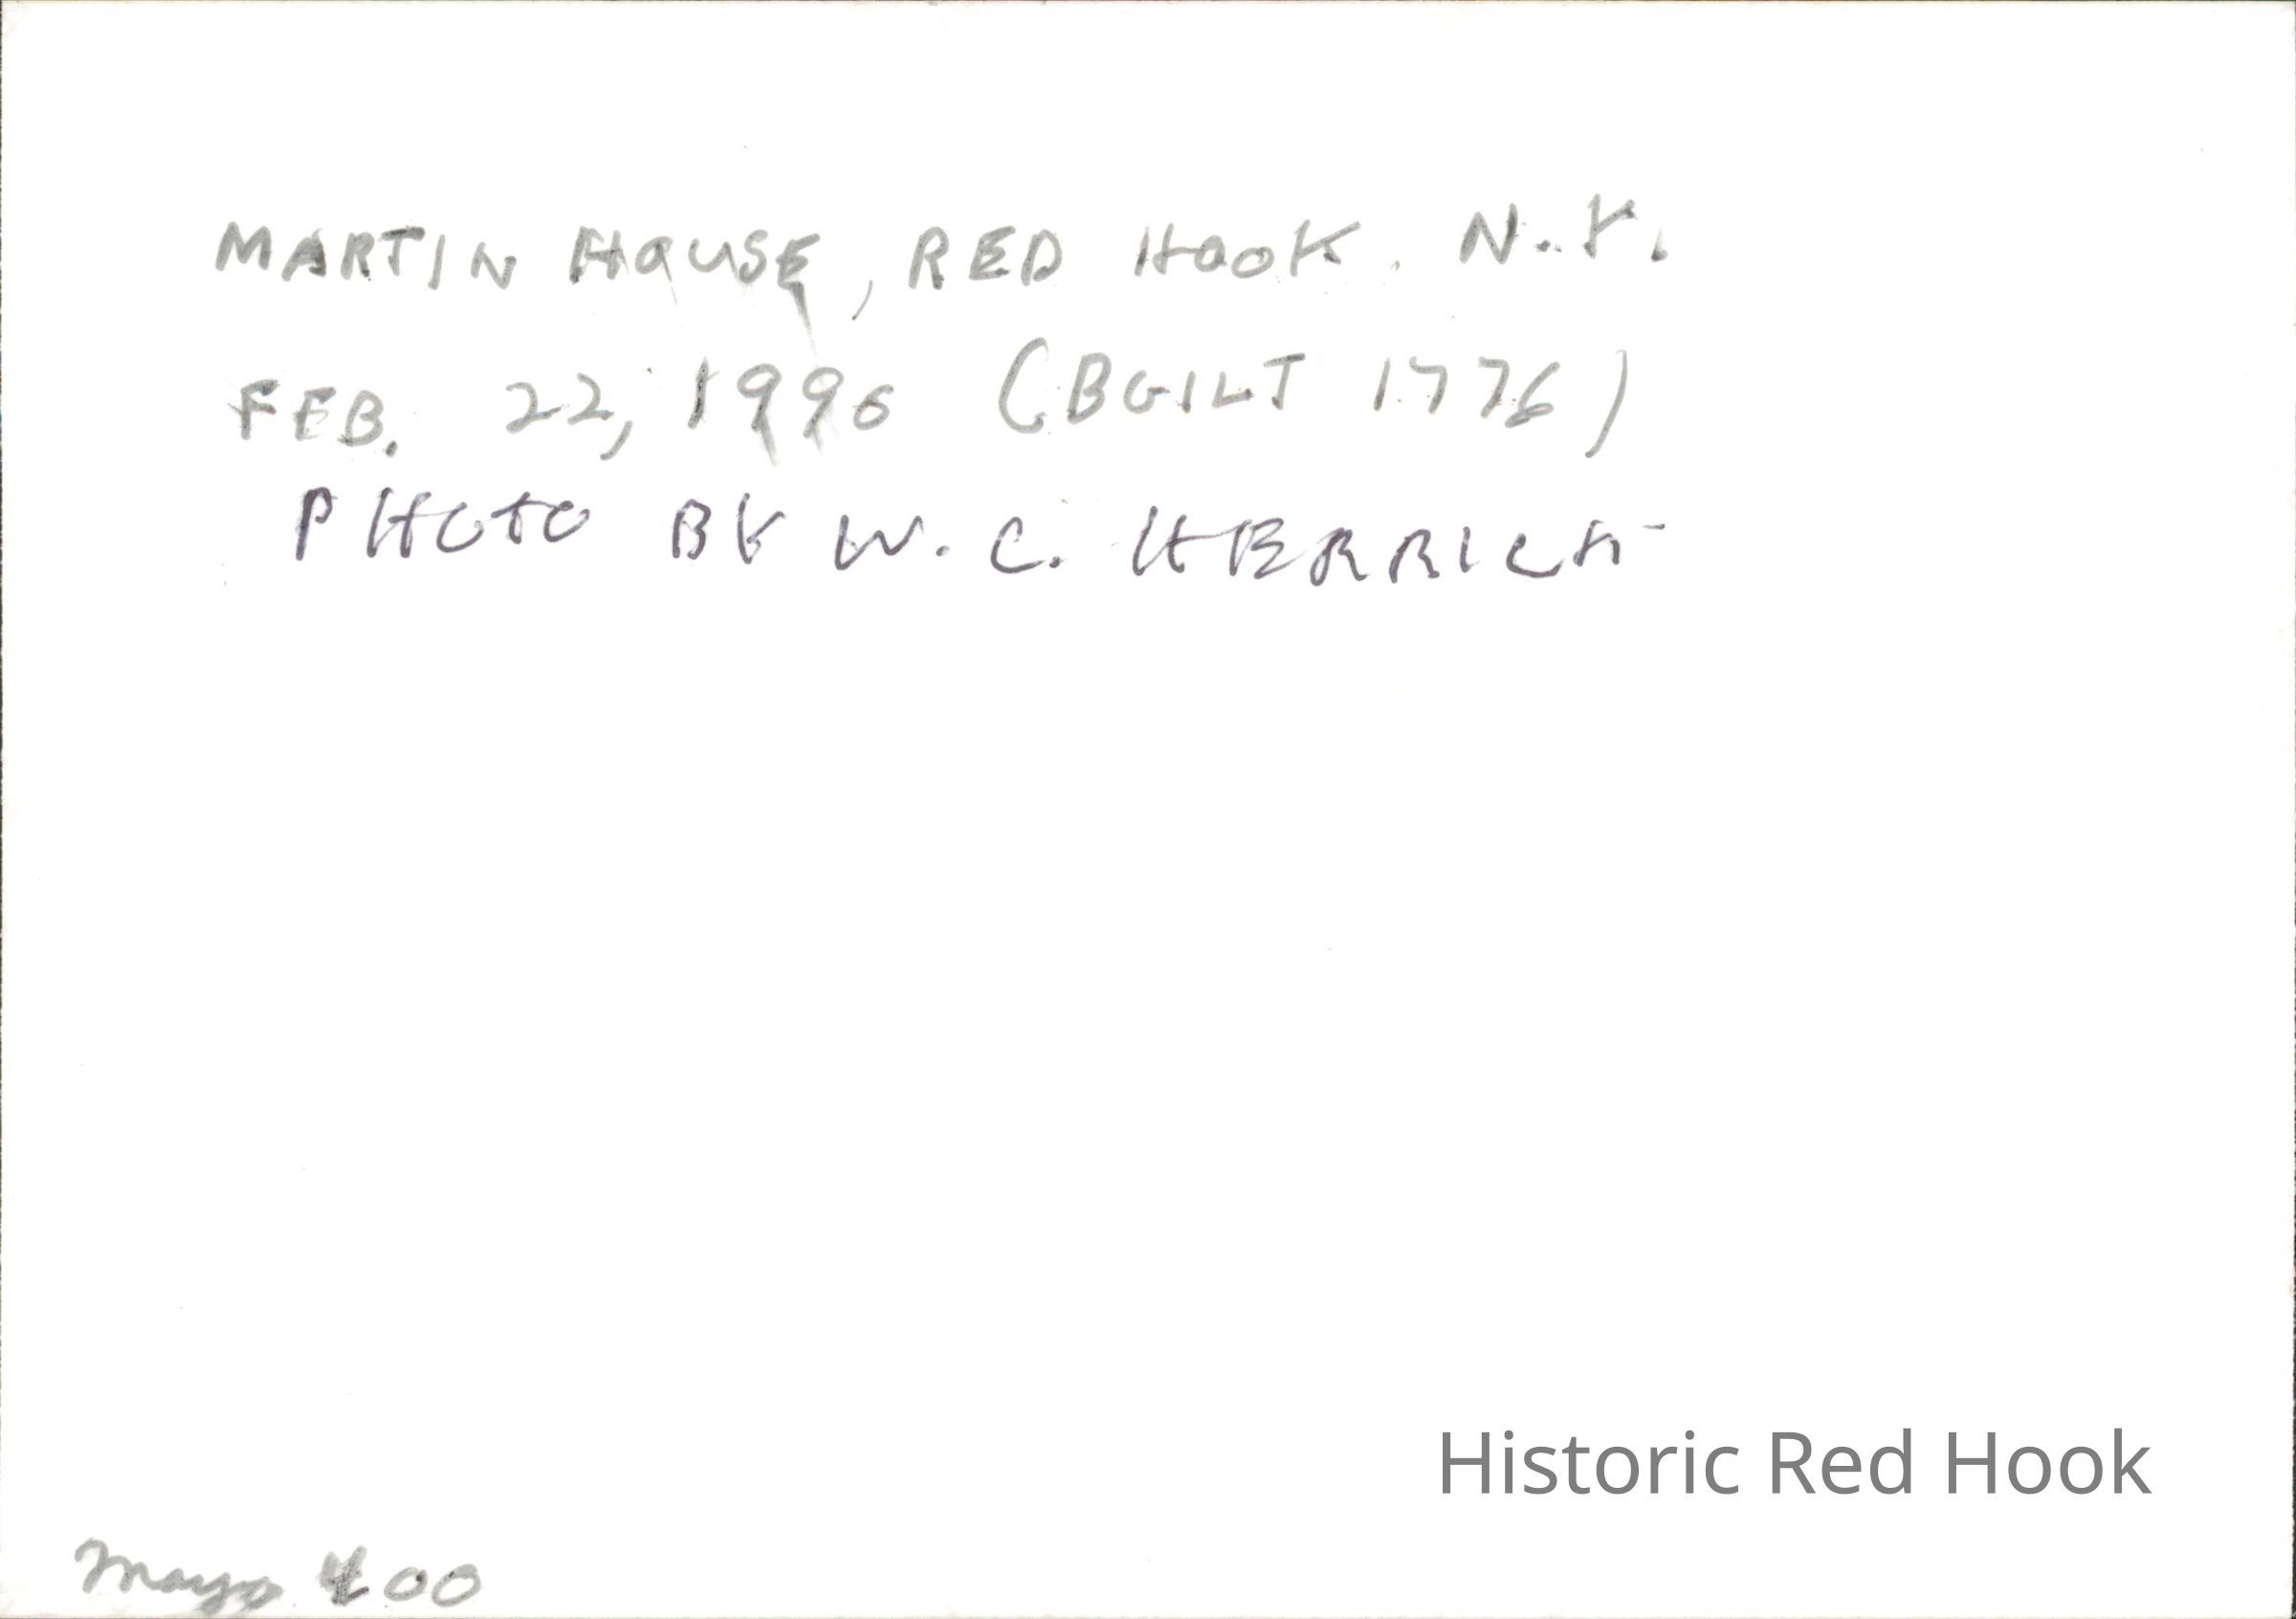 MARTIN HOUSE, RED HOOK. N.Y.
FEB. 22, 1996 (BUILT 1776)
PHOTO BY W. C. HERRICK
Historic Red Hook
400